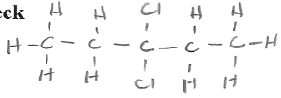 eck
H H Cl H H
H-C-C-C-C-C-H
H H Cl H H